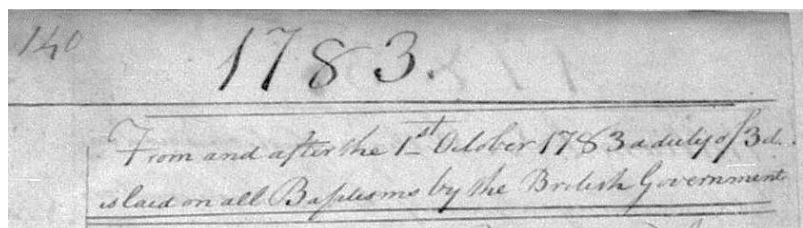 140
1783.
From and after the 1st October 1783 a duty of 3d.
is laid on all Baptisms by the British Government